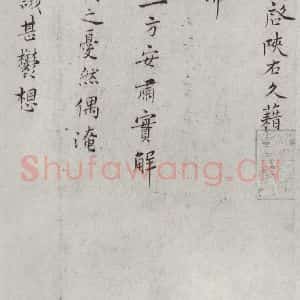 啓陝右久藉
一方安肅實解
之憂然偶淹
甚鬱想
ShufaWang.CN